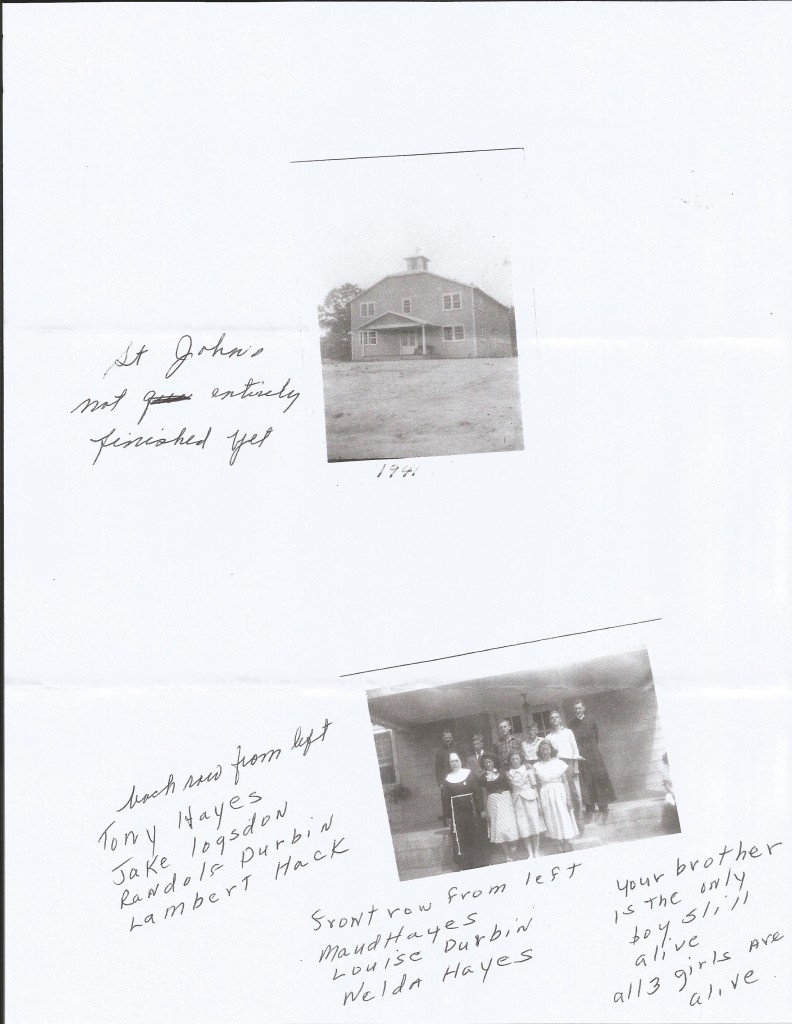 St Johns
not entirely
finished yet
1941
back row from left
Tony Hayes
Jake logsdon
Randolf Durbin
Lambert Hack
Front row from left
Maud Hayes
Louise Durbin
Nelda Hayes
your brother
is the only
boy still
alive
all 3 girls are
alive